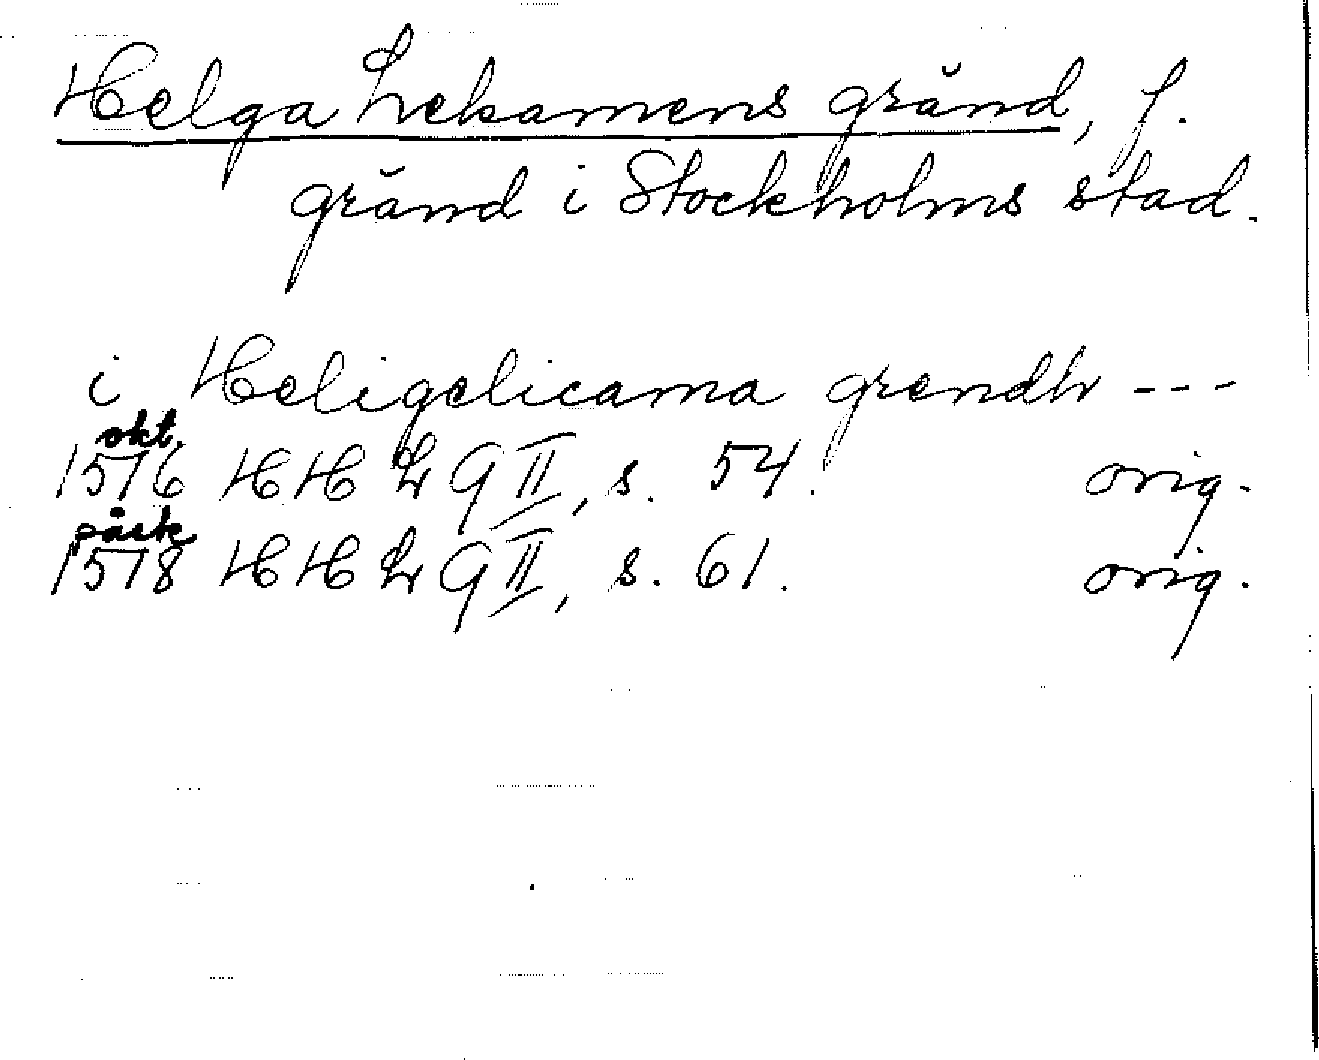 Helga Lekamens gränd, f.
gränd i Stockholms stad.
i Heligelicama grendh ---
okt.
1576 HH L 9 II, s. 54. orig.
påsk
1578 HH L 9 II, s. 61. orig.